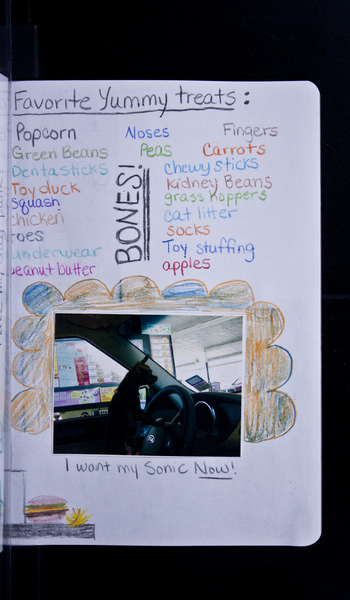 Favorite Yummy treats:
Popcorn Noses Fingers
Green Beans Peas Carrots
Dentasticks chewy sticks
Toy duck Kidney Beans
Squash grass hoppers
chicken cat litter
Toes socks
underwear Toy stuffing
peanut butter apples
BONES!
I want my Sonic Now!